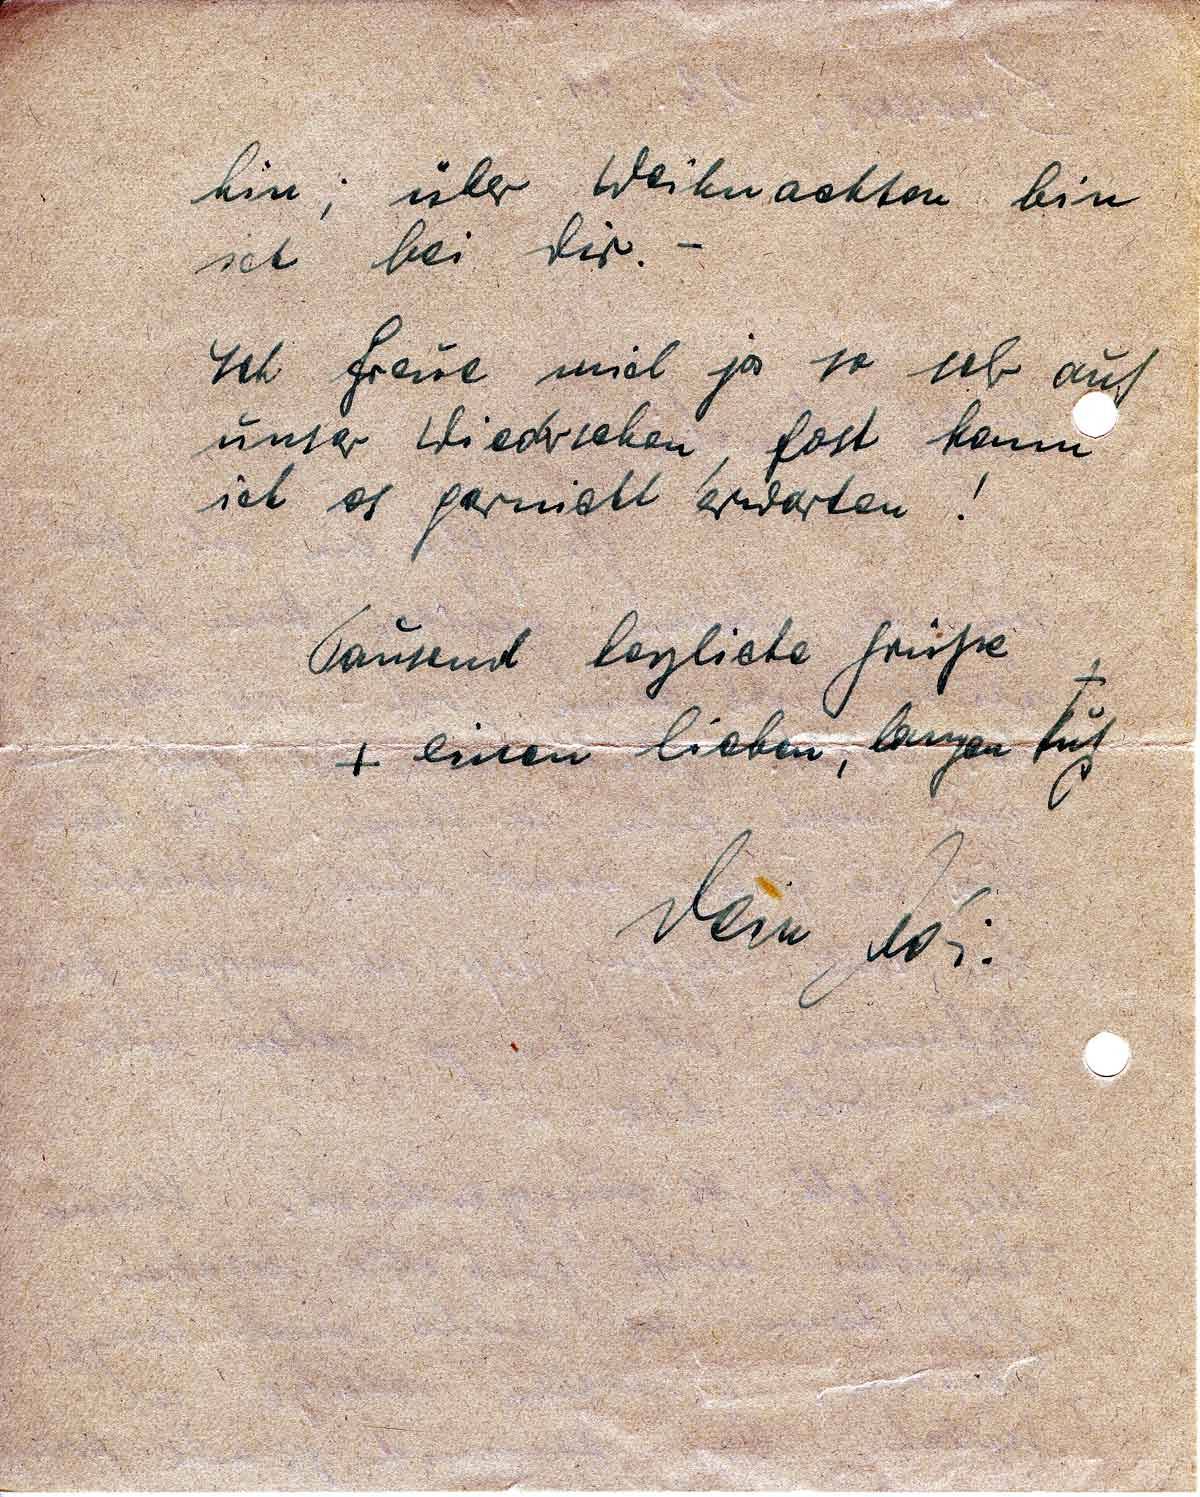 hin; über Weihnachten bin
ich bei Dir. –
Ich freue mich ja so sehr auf
unser Wiedersehen, fast kann
ich es garnicht erwarten!
Tausend herzliche Grüße
+ einen lieben, langen Kuß
Dein